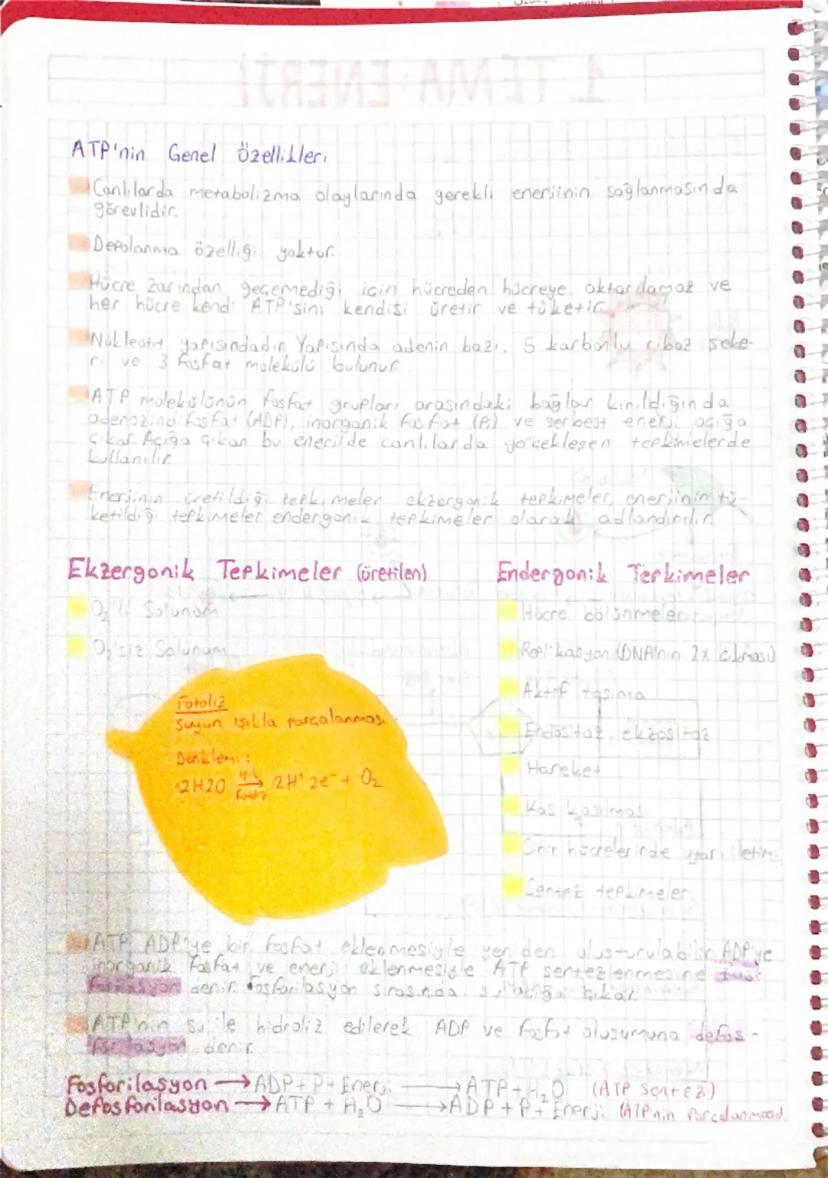 ATP'nin Genel Özellikleri
Canlılarda metabolizma olaylarında gerekli enerjinin sağlanmasında
görevlidir.
Depolanma özelliği yoktur.
Hücre zarından geçemediği için hücreden hücreye aktarılamaz ve
her hücre kendi ATP'sini kendisi üretir ve tüketir.
Nükleotit yapısındadır. Yapısında adenin bazı, 5 karbonlu riboz şeke-
ri ve 3 fosfat molekülü bulunur.
ATP molekülünün fosfat grupları arasındaki bağlar kırıldığında
adenozindifosfat (ADP), inorganik fosfat (Pi) ve serbest enerji açığa
çıkar. Açığa çıkan bu enerjide canlılarda gerçekleşen tepkimelerde
kullanılır.
Enerjinin üretildiği tepkimeler ekzergonik tepkimeler, enerjinin tü-
ketildiği tepkimeler endergonik tepkimeler olarak adlandırılır.
Ekzergonik Tepkimeler (üretilen)
O₂'li Solunum
O₂'siz Solunum
Fotoliz
Suyun ışıkla parçalanması
Denklemi:
2H2O ışık fotoliz → 2H⁺ 2e⁻ + O₂
Endergonik Tepkimeler
Hücre bölünmeleri
Replikasyon (DNA'nın 2x çıkması)
Aktif taşıma
Endositoz, ekzositoz
Hareket
Kas kasılması
Sinir hücrelerinde uyarı iletimi
Sentez tepkimeleri
ATP, ADP'ye bir fosfat eklenmesiyle yeniden oluşturulabilir. ADP'ye
inorganik fosfat ve enerji eklenmesiyle ATP sentezlenmesine fos-
forilasyon denir. Fosforilasyon sırasında su açığa çıkar.
ATP'nin su ile hidroliz edilerek ADP ve fosfat oluşumuna defos-
forilasyon denir.
Fosforilasyon → ADP + P + Enerji → ATP + H₂O (ATP sentezi)
Defosforilasyon → ATP + H₂O → ADP + P + Enerji (ATPnin Parçalanması)